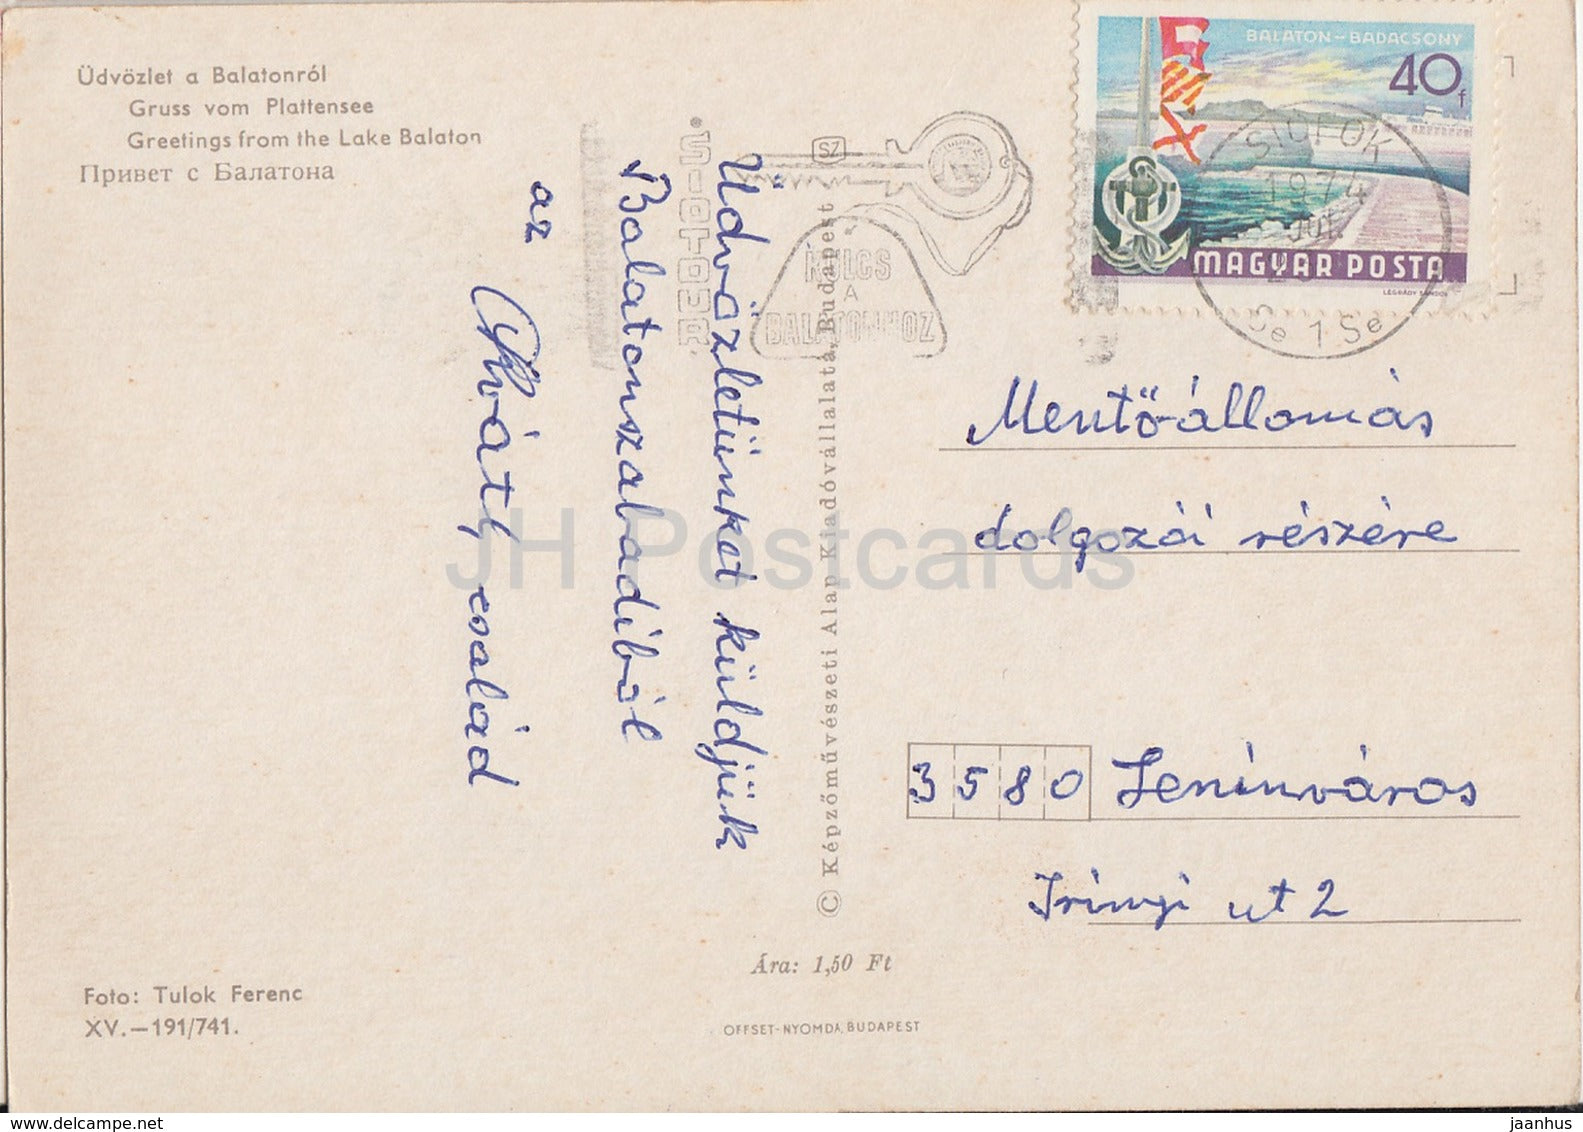 Üdvözlet a Balatonról
Gruss vom Plattensee
Greetings from the Lake Balaton
Привет с Балатона
Üdvözletünket küldjük
Balatonszabadiból
az
család
SIÓTOUR
SZ
KULCS
A
BALATONHOZ
© Képzőművészeti Alap Kiadóvállalata, Budapest
BALATON-BADACSONY
40f
MAGYAR POSTA
LÉGRÁDY SÁNDOR
SIÓFOK
1974
JÚL.
Se 1 Se
Mentő-állomás
dolgozói részére
3580 Leninváros
Irinyi ut 2
Ára: 1,50 Ft
Foto: Tulok Ferenc
XV.—191/741.
OFFSET-NYOMDA, BUDAPEST
JH Postcards
www.delcampe.net
jaanhus